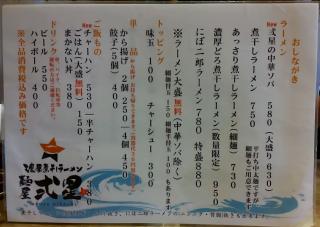 おしながき
ラーメン
New 弐星の中華ソバ 580 (大盛り630)
煮干しラーメン 750
※平打ち中太麺ですが、
細麺もご用意できます
あっさり煮干しラーメン(細麺) 730
濃厚どろ煮干しラーメン(数量限定) 950
にぼ二郎ラーメン 780 特盛880
※ラーメン大盛 無料(中華ソバ除く)
トッピング
味玉 100 チャーシュー 300
単品
から揚げ 2個 250 4個 450
餃子5個 400
ご飯もの
New チャーハン 530 半チャーハン 380
ごはん(大盛無料) 150
まかない丼 380
ドリンク
ビール 550
ハイボール 400
※全品消費税込み価格です
濃厚煮干しラーメン
麺屋 弐星